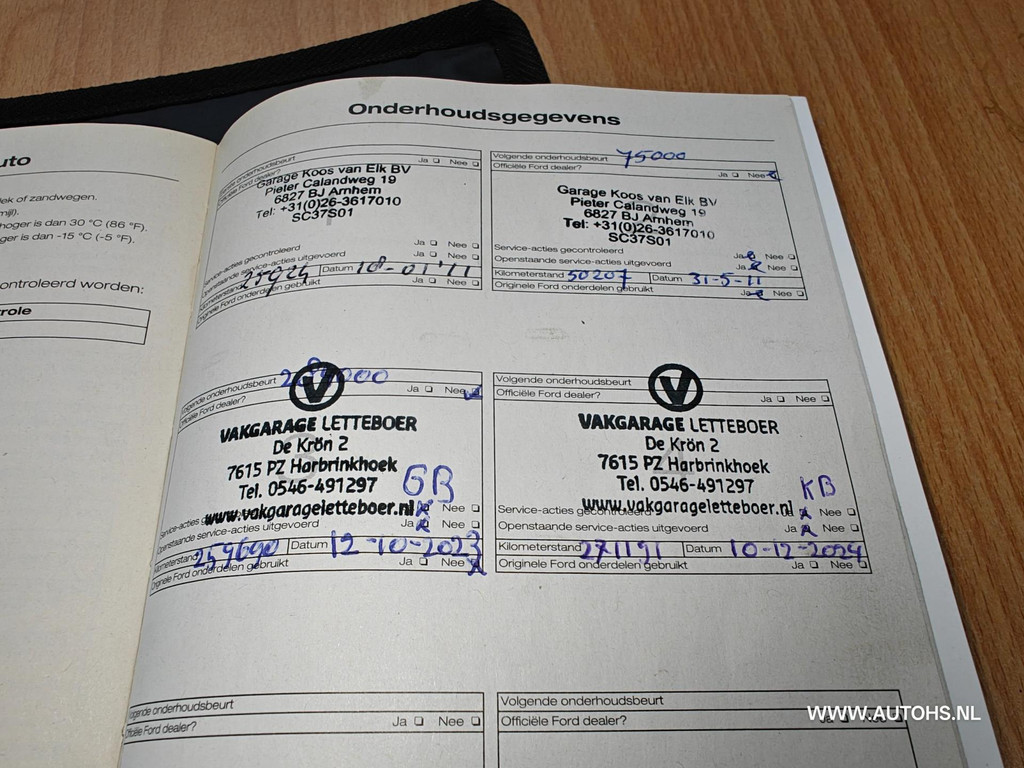 uto
ek of zandwegen.
mijl).
hoger is dan 30 °C (86 °F).
ger is dan -15 °C (-5 °F).
ontroleerd worden:
role
Onderhoudsgegevens
Ja Nee
Garage Koos van Elk BV
Pieter Calandweg 19
6827 BJ Arnhem
Tel: +31(0)26-3617010
SC37S01
Service-acties gecontroleerd Ja Nee
Openstaande service-acties uitgevoerd Ja Nee
Kilometerstand Datum 18-01'11
Originele Ford onderdelen gebruikt Ja Nee
Volgende onderhoudsbeurt 75000
Officiële Ford dealer? Ja Nee
Garage Koos van Elk BV
Pieter Calandweg 19
6827 BJ Arnhem
Tel: +31(0)26-3617010
SC37S01
Service-acties gecontroleerd Ja Nee
Openstaande service-acties uitgevoerd Ja Nee
Kilometerstand 50207 Datum 31-5-11
Originele Ford onderdelen gebruikt Ja Nee
Volgende onderhoudsbeurt
Officiële Ford dealer? Ja Nee
V
VAKGARAGE LETTEBOER
De Krön 2
7615 PZ Harbrinkhoek
Tel. 0546-491297
GB
www.vakgarageletteboer.nl
Service-acties Nee
Openstaande service-acties uitgevoerd Ja Nee
Kilometerstand 259690 Datum 12-10-2023
Originele Ford onderdelen gebruikt Ja Nee
Volgende onderhoudsbeurt
Officiële Ford dealer? Ja Nee
V
VAKGARAGE LETTEBOER
De Krön 2
7615 PZ Harbrinkhoek
Tel. 0546-491297
KB
www.vakgarageletteboer.nl
Service-acties gecontroleerd Nee
Openstaande service-acties uitgevoerd Ja Nee
Kilometerstand 271191 Datum 10-12-2024
Originele Ford onderdelen gebruikt Ja Nee
Volgende onderhoudsbeurt
Officiële Ford dealer? Ja Nee
Volgende onderhoudsbeurt
Officiële Ford dealer? Nee
WWW.AUTOHS.NL